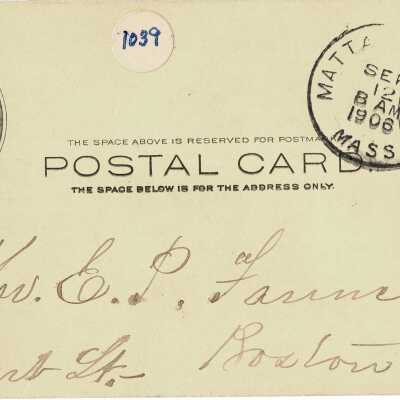 1039
MATTA
SEP
12
8 AM
1906
MASS
THE SPACE ABOVE IS RESERVED FOR POSTMARK
POSTAL CARD.
THE SPACE BELOW IS FOR THE ADDRESS ONLY.
E. P. Farm
St. Boston